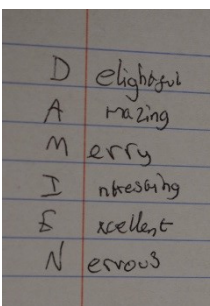 D elightful
A mazing
M erry
I ntresting
E xcellent
N ervous